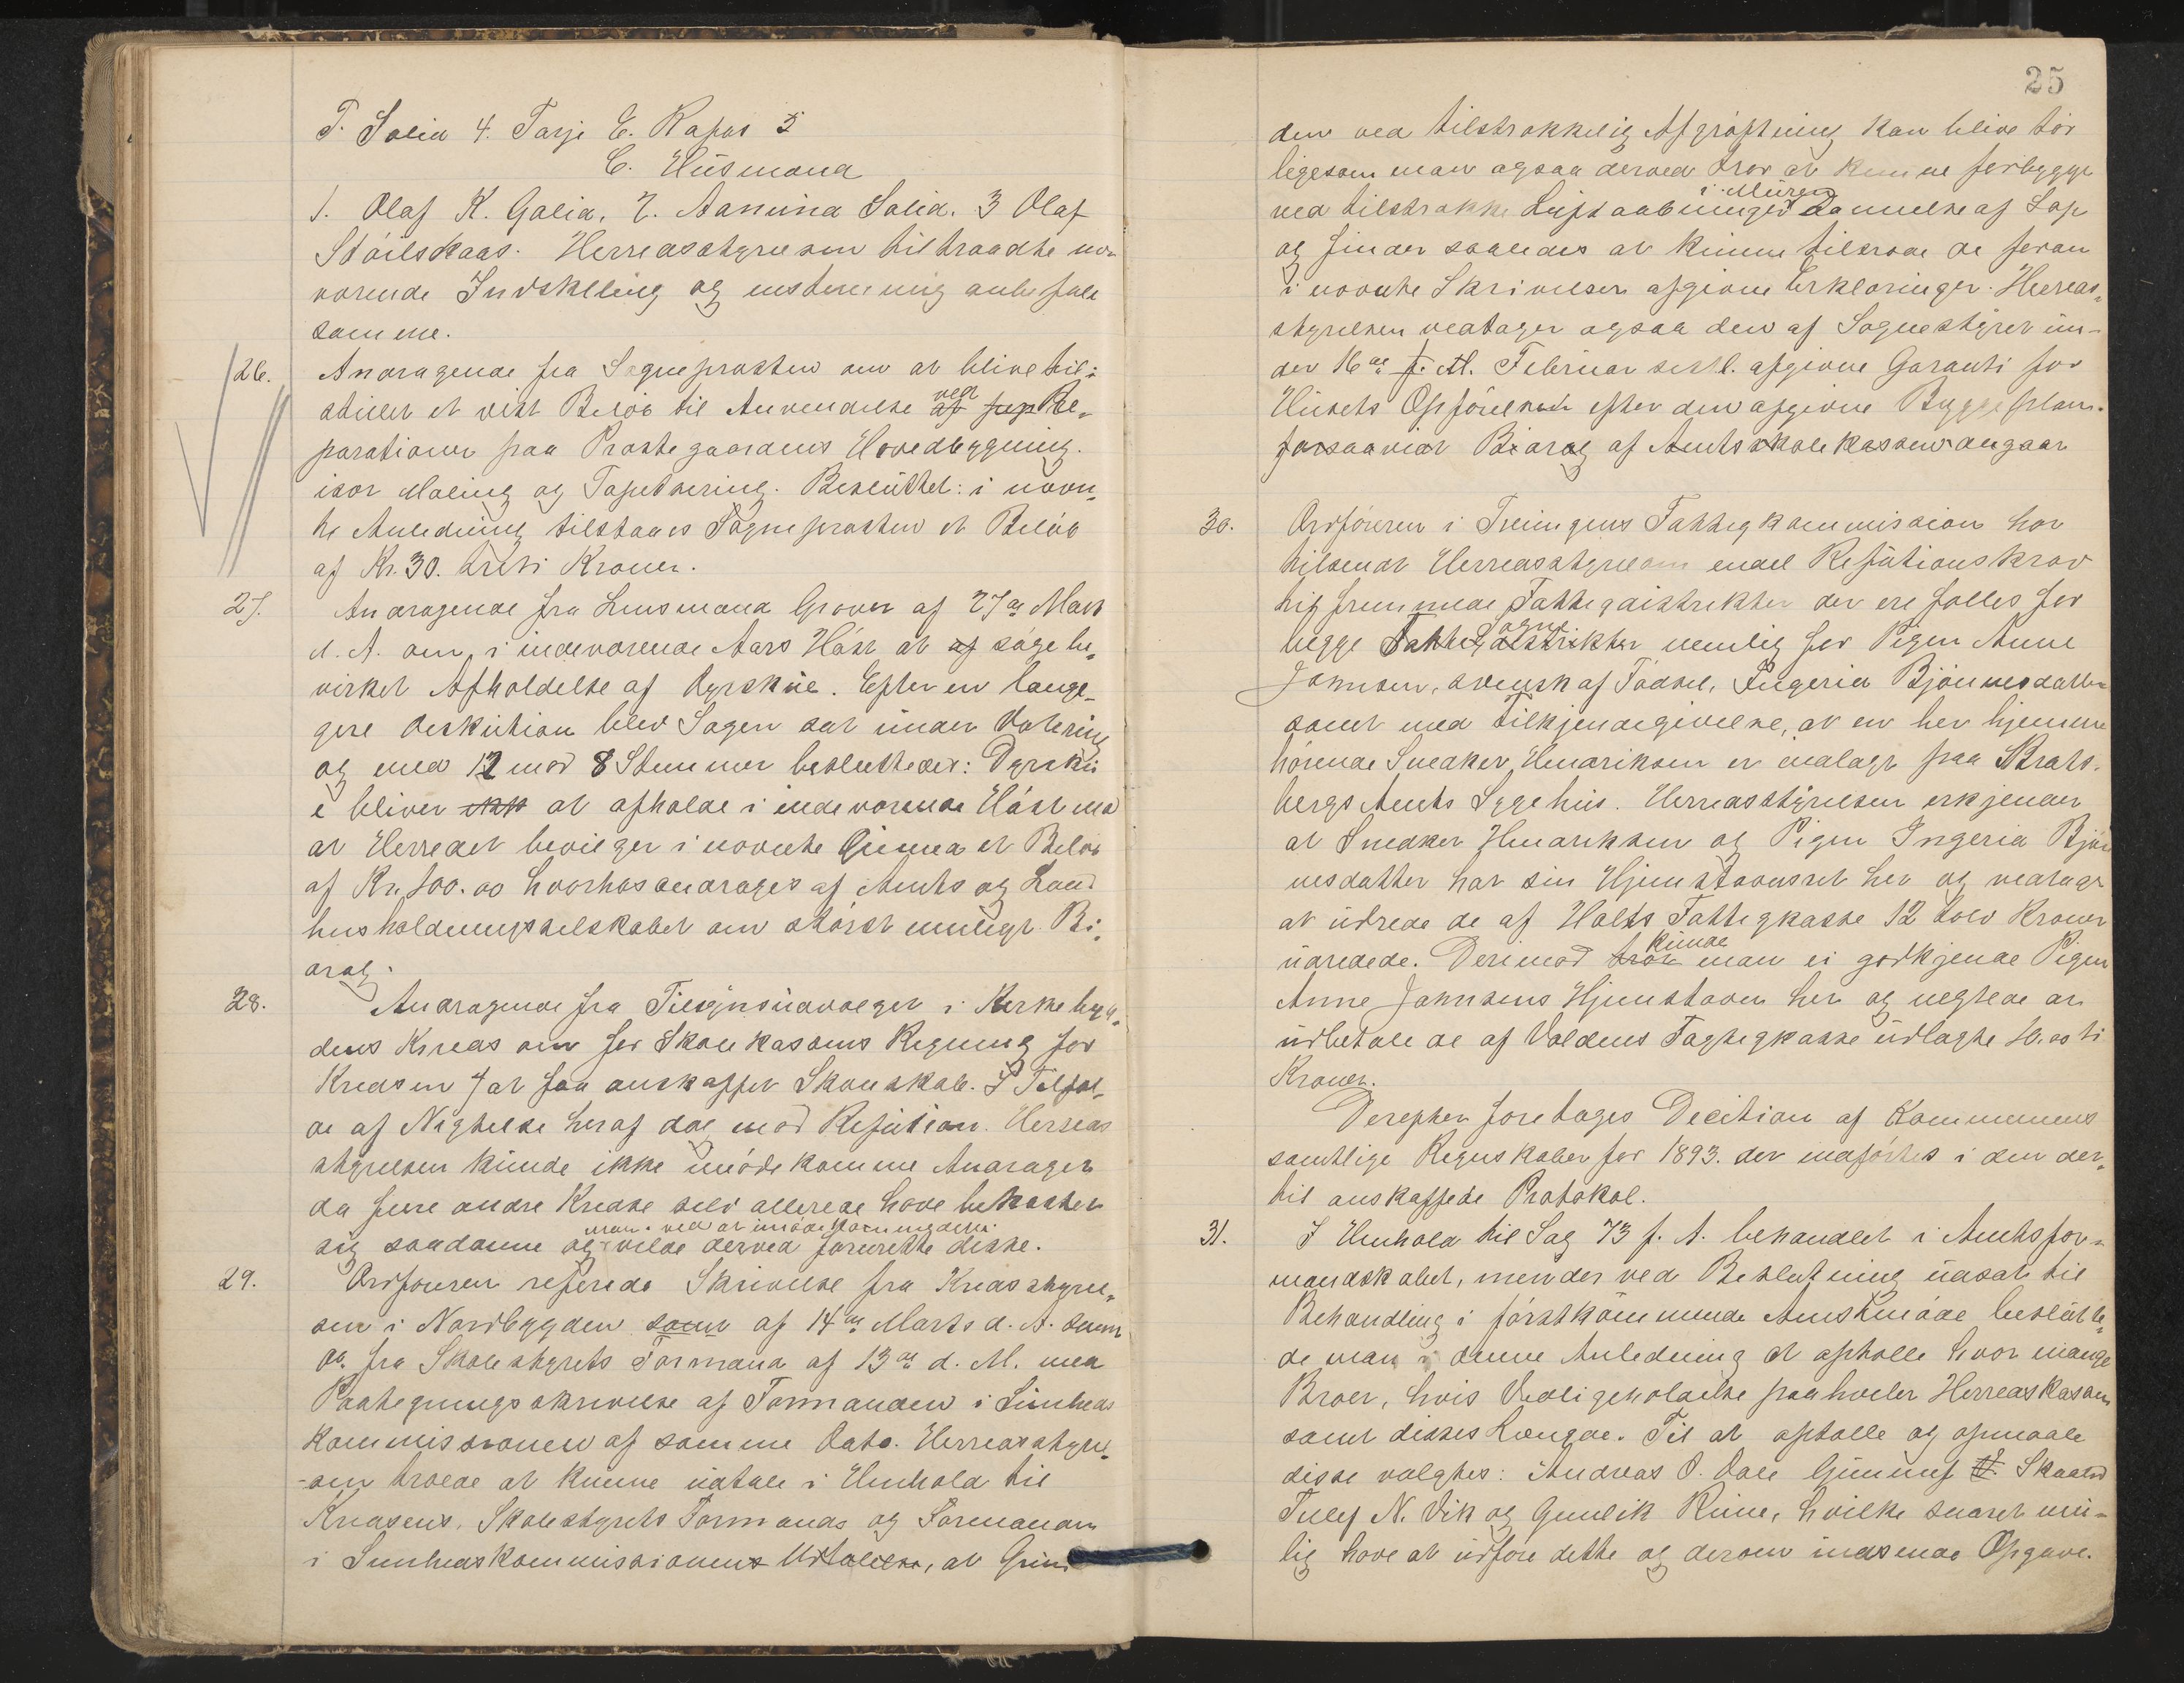 T. Solid 4. Tarje E. Rafos 5
C. Husmænd
1. Olaf K. Golid, 2. Aanund Solid. 3 Olaf
Stöilskaas. Herredsstyrelsen tiltraadte nær
værende Indstilling og enstemmig anbefale
samme.
26. Andragende fra Sognepræsten om at blive til-
stillet et vist Beløb til Anvendelse ved Re-
parationer paa Præstegaardens Hovedbygning.
især Maling og Tapetsering. Besluttet: i nævn-
te Anledning tilstaaes Sognepræsten et Beløb
af Kr. 30. treti Kroner.
27. Andragende fra Lensmand Grover af 27de Mars
d. A. om i indeværende Aars Høst at søge be-
virket Afholdelse af Dyrskue. Efter en længe-
gere Deskution blev Sagen sat under Votering
og med 12 mod 8 Stemmer besluttedes: Dyrsku
e bliver at afholde i indeværende Høst med
at Herredet bevilger i nævnte Øiemed et Beløb
af Kr. 100.00 hvorhos andrages af Amts og Land
husholdningsselskabet om størst muligt Bi-
drag.
28. Andragende fra Tilsynsudvalget i Kirkebyg-
dens Kreds om for Skolekassens Regning for
Kredsen at faa anskaffet Skoleskab. I Tilfæl-
de af Nægtelse heraf dog mod Refution. Herreds
styrelsen kunde ikke imødekomme Andraget
da flere andre Kredse selv allerede have bekostet
man ved at imødekomme dette
sig saadanne og vilde derved forurette disse.
29. Ordføreren referede Skrivelse fra Kredsstyrel-
sen i Nordbygden samt af 14de Marts d. A. samt
do. fra Skolestyrets Formand af 13de d. M. med
Paategningsskrivelse af Formanden i Sunheds
kommissionen af samme Dato. Herredsstyrel-
-sen troede at kunne udtale i Henhold til
Kredsens, Skolestyrets Formands og Formanden
i Sunhedskommissionens Udtalelse, at Grun
25
den ved tilstrækkelig Afgrøftning kan blive tør
ligesom man ogsaa derved tror at kunne forbygge
i Muren
ved tilstrække Luftaabninger Dannelse af Sop
og finder saaledes at kunne tilraade de foran
i nævnte Skrivelser afgivne Erklæringer. Herreds-
styrelsen vedtager ogsaa den af Sognestyret un-
der 16de f. M. Februar sestl. afgivne Garanti for
Husets Opførelse efter den afgivne Byggeplan.
forsaavidt Bidrag af Amtsskolekassen angaar
30. Ordføreren i Treungens Fattigkommission har
tilsendt Herredsstyrelsen endel Refutionskrav
til fremmede Fattigdistrikter der ere fælles for
Sogne
begge Fattigdistrikter nemlig for Pigen Anne
Johnsen, svensk af Fødsel, Ingerid Bjønnesdatter
samt med Tilkjendegivelse, at en her hjemme
hørende Snedker Hendriksen er indlagt paa Brats-
bergs Amts Sygehus. Herredsstyrelsen erkjender
at Snedker Hendriksen og Pigen Ingerid Bjøn
nesdatter har sin Hjemstavnsret her og vedtage
at udrede de af Holts Fattigkasse 12 tolv Kroner
kunde
udredede. Derimod man ei godkjende Pigen
Anne Johnsens Hjemstavn her og negtede at
udbetale de af Voldens Fattigkasse udlagte 10.00 ti
Kroner.
Derefter foretages Decition af Kommunens
samtlige Regnskaber for 1893. der indførtes i den der-
til anskaffede Protokol.
31. I Henhold til Sag 73 f. A. behandlet i Amtsfor-
mandskabet, men der ved Beslutning udsat til
Behandling i førstkommende Amstmøde beslutte-
de man i denne Anledning at optælle hvor mange
Broer, hvis Vedligeholdelse paahviler Herredskassen
samt disses Længde. Til at optælle og opmaale
disse valgtes: Andreas O. Dale Gunnuf Skaared
Tellef N. Vik og Gunlik Rime, hvilke snarest mu-
lig have at udføre dette og derom indsende Opgave.